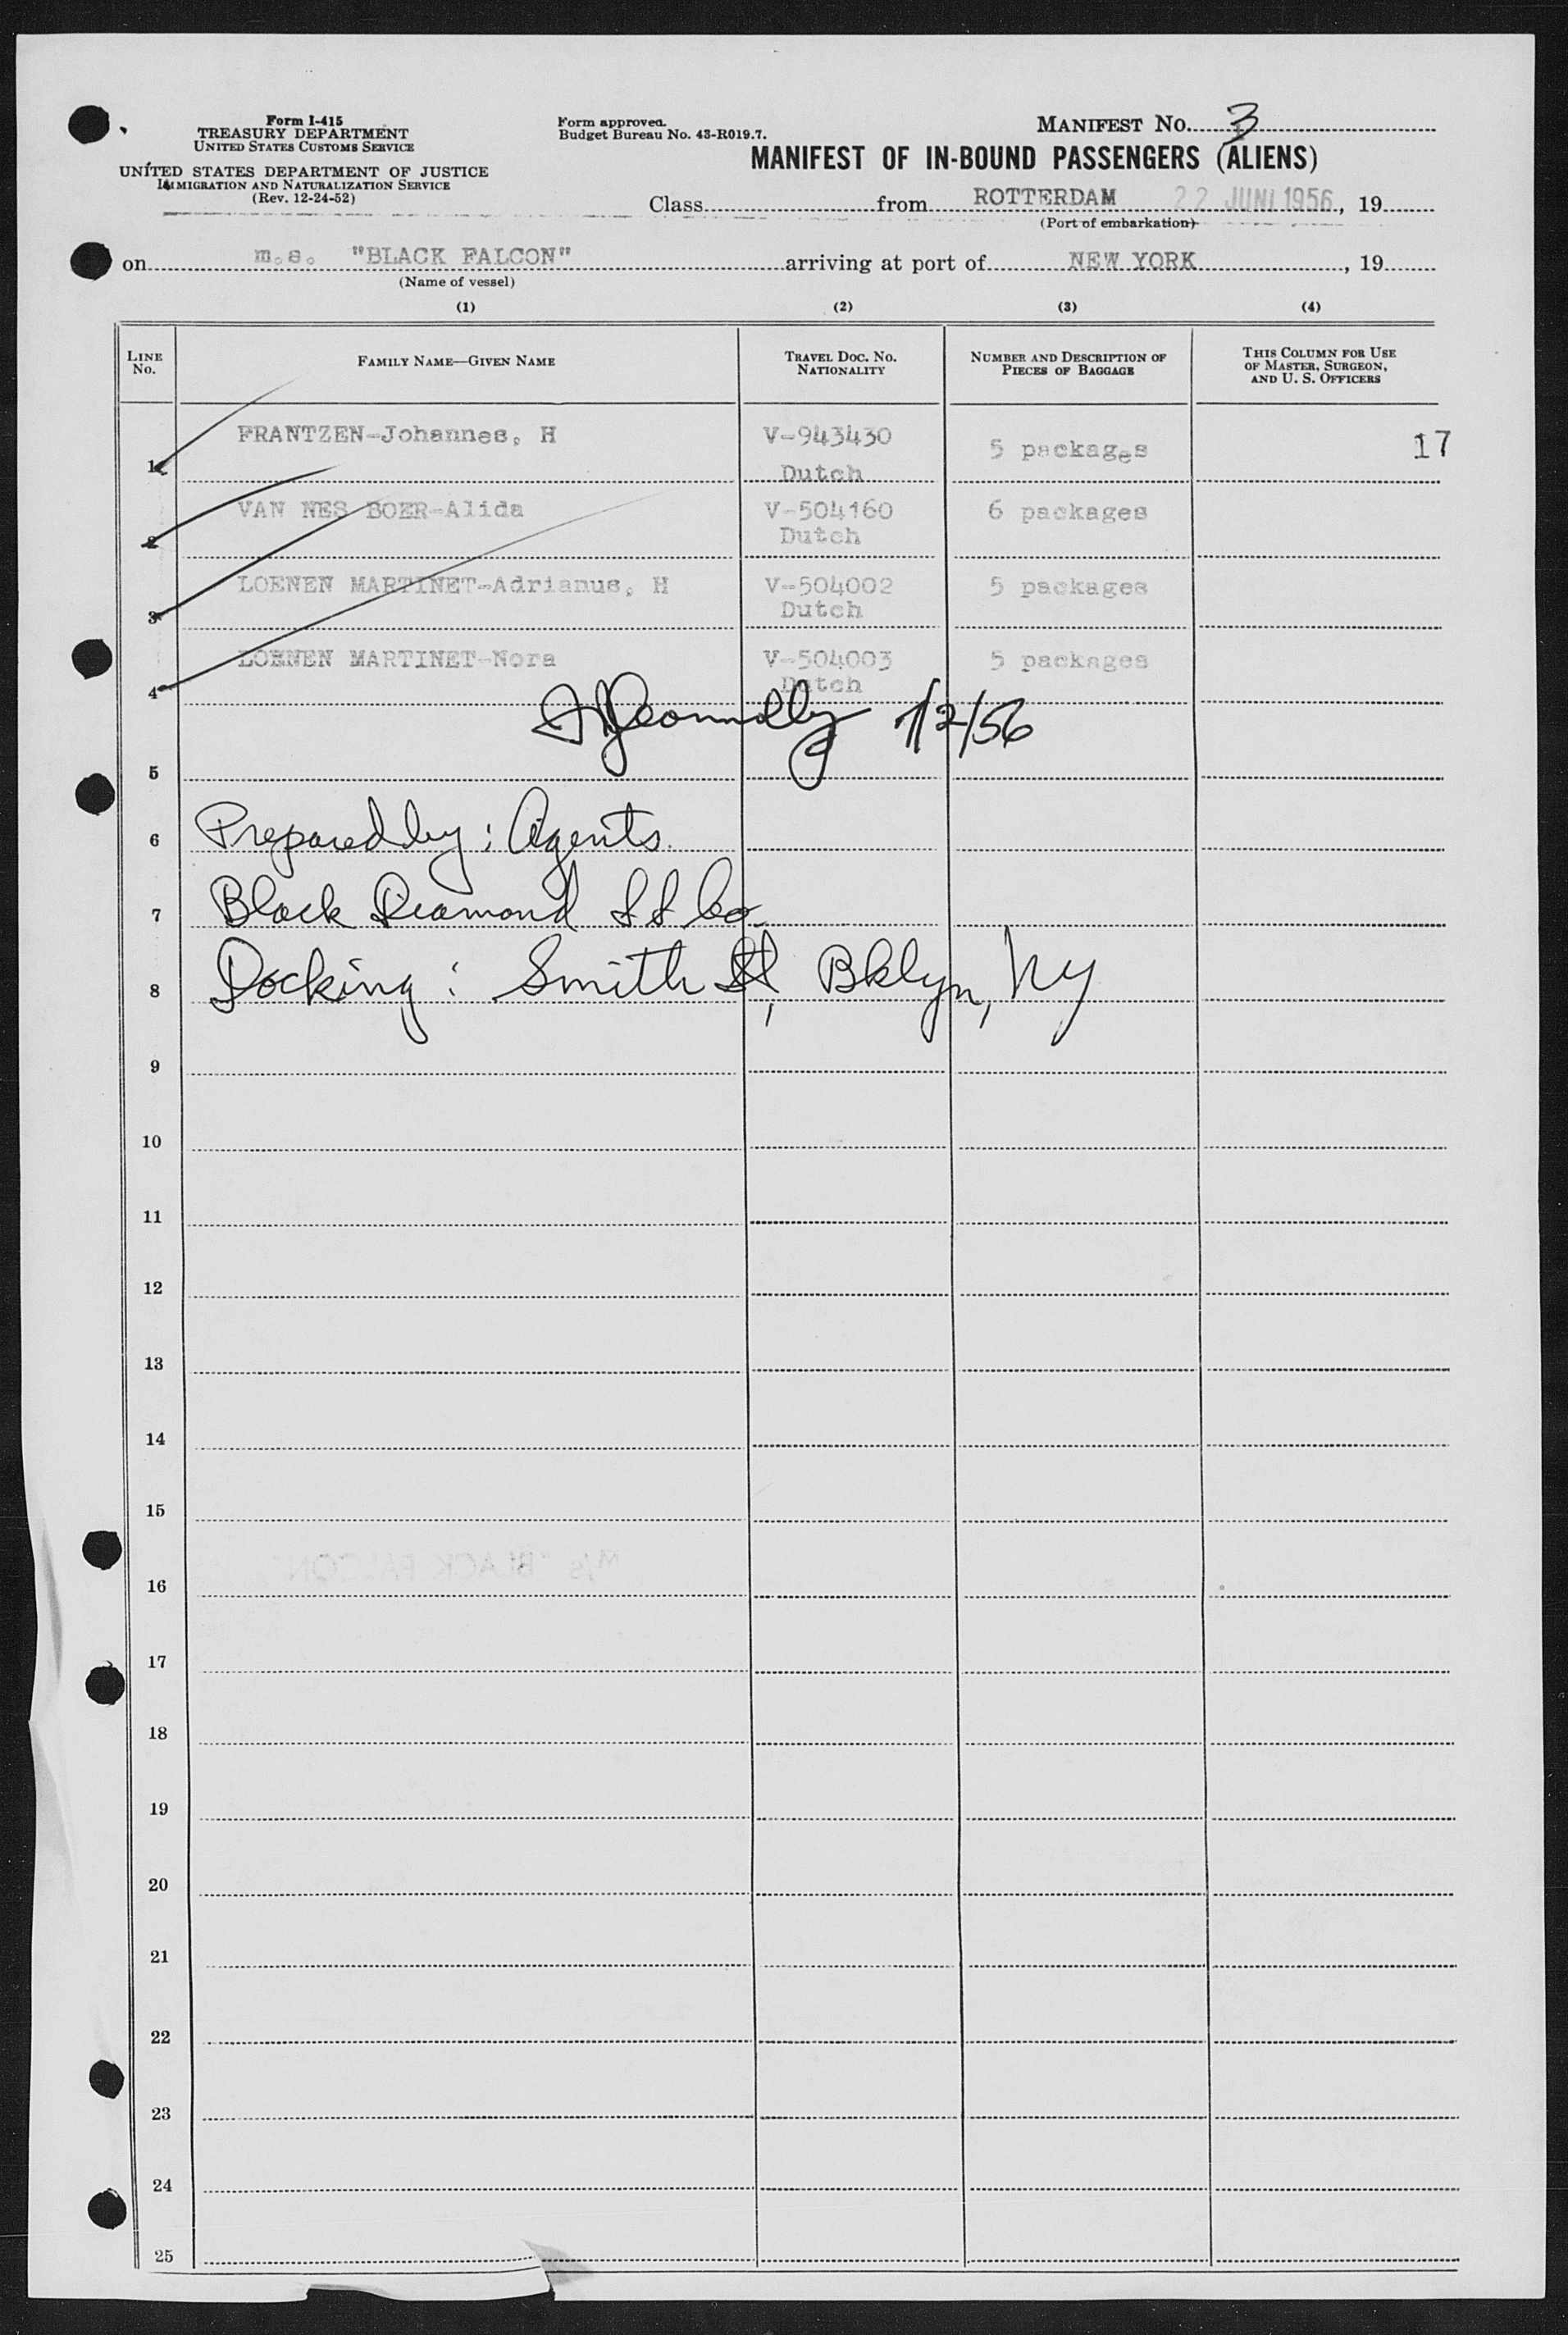 Form I-415
TREASURY DEPARTMENT
UNITED STATES CUSTOMS SERVICE
UNITED STATES DEPARTMENT OF JUSTICE
IMMIGRATION AND NATURALIZATION SERVICE
(Rev. 12-24-52)
Form approved.
Budget Bureau No. 43-R019.7.
MANIFEST NO. 3
MANIFEST OF IN-BOUND PASSENGERS (ALIENS)
Class from ROTTERDAM 22 JUNI 1956, 19
(Port of embarkation)
on m.s. "BLACK FALCON" arriving at port of NEW YORK, 19
(Name of vessel)
(1) (2) (3) (4)
LINE NO. FAMILY NAME—GIVEN NAME TRAVEL DOC. NO. NATIONALITY NUMBER AND DESCRIPTION OF PIECES OF BAGGAGE THIS COLUMN FOR USE OF MASTER, SURGEON, AND U. S. OFFICERS
1 FRANTZEN-Johannes, H V-943430 5 packages 17
Dutch
2 VAN NES BOER-Alida V-504160 6 packages
Dutch
3 LOENEN MARTINET-Adrianus, H V-504002 5 packages
Dutch
4 LOENEN MARTINET-Nora V-504003 5 packages
Dutch
7/2/56
5
6 Prepared by: Agents
7 Black Diamond SS Co.
8 Docking: Smith St, Bklyn, NY
9
10
11
12
13
14
15
16
17
18
19
20
21
22
23
24
25